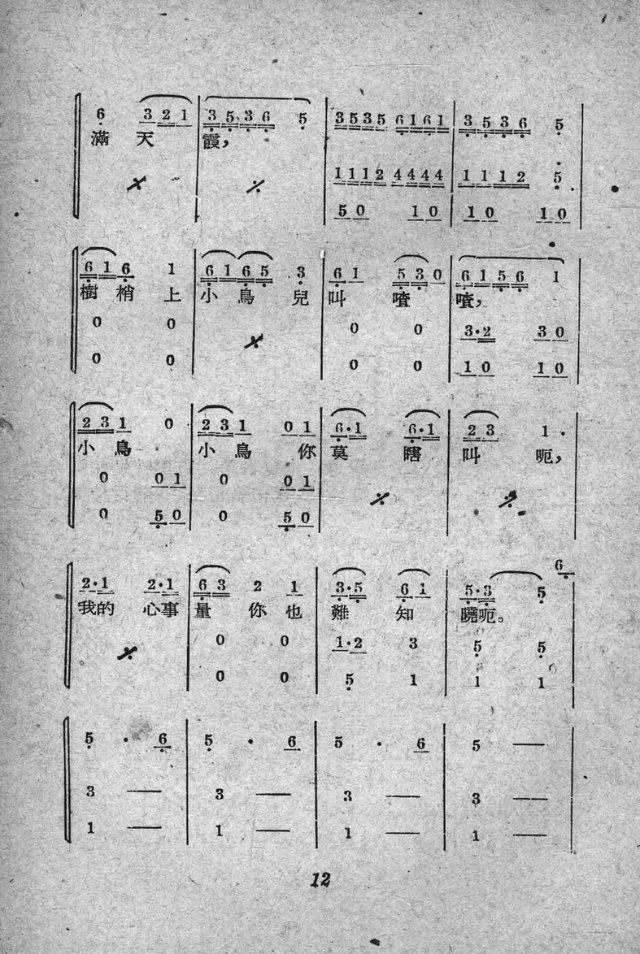 6 3 2 1 3 5 3 6 5 3535 6161 3 5 3 6 5
滿 天 霞,
1112 4444 1 1 1 2 5
5 0 1 0 1 0 1 0
6 1 6 1 6 1 6 5 3 6 1 5 3 0 6 1 5 6 1
樹 梢 上 小 鳥 兒 叫 喳 喳,
0 0 0 0 3·2 3 0
0 0 0 0 1 0 1 0
2 3 1 0 2 3 1 0 1 6·1 6·1 2 3 1·
小 鳥 小 鳥 你 莫 瞎 叫 呃,
0 0 1 0 0 1
0 5 0 0 5 0
2·1 2·1 6 3 2 1 3·5 6 i 5·3 5 6
我的 心事 量 你 也 難 知 曉呃。
0 0 1·2 3 5 5
0 0 5 1 1 1
5 · 6 5 · 6 5 · 6 5 —
3 — 3 — 3 — 3 —
1 — 1 — 1 — 1 —
12